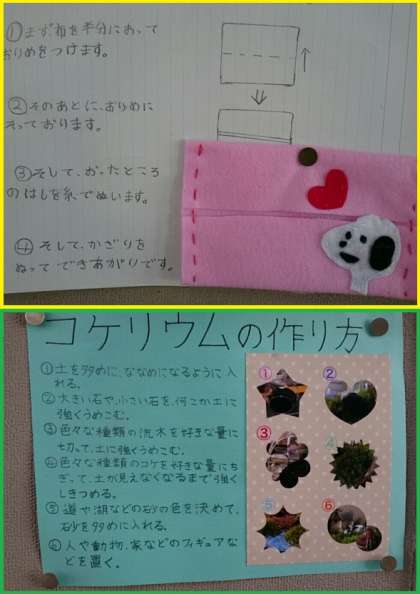 ①まず布を半分におって
おりめをつけます。
②そのあとに、おりめに
そっております。
③そして、おったところ
のはしを糸でぬいます。
④そして、かざりを
ぬってできあがりです。
コケリウムの作り方
①土を多めに、ななめになるように入
れる。
②大きい石や、小さい石を、何こか土に
強くうめこむ。
③色々な種類の流木を好きな量に
切って、土に強くうめこむ。
④色々な種類のコケを好きな量にち
ぎって、土が見えなくなるまで強く
しきつめる。
⑤道や湖などの砂の色を決めて、
砂を多めに入れる。
⑥人や動物、家などのフィギュアな
どを置く。
① ②
③ ④
⑤ ⑥